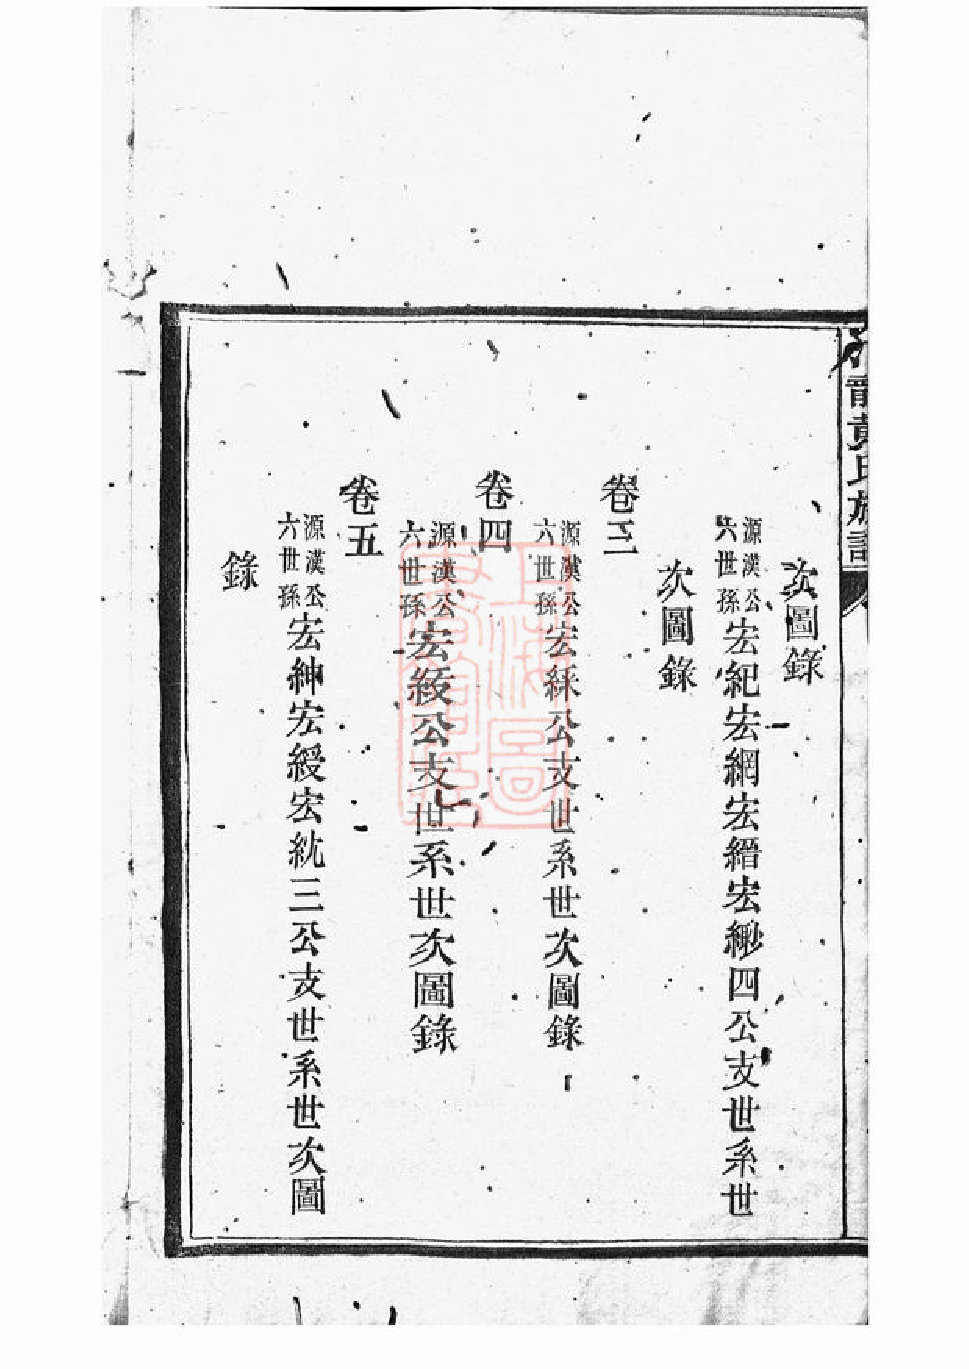 黃氏族譜
次圖錄
源漢公六世孫宏紀宏網宏縉宏緲四公支世系世
次圖錄
卷三
源漢公六世孫宏綵公支世系世次圖錄
卷四
源漢公六世孫宏綬公支世系世次圖錄
卷五
源漢公六世孫宏紳宏綬宏紞三公支世系世次圖
錄
上海圖書館藏